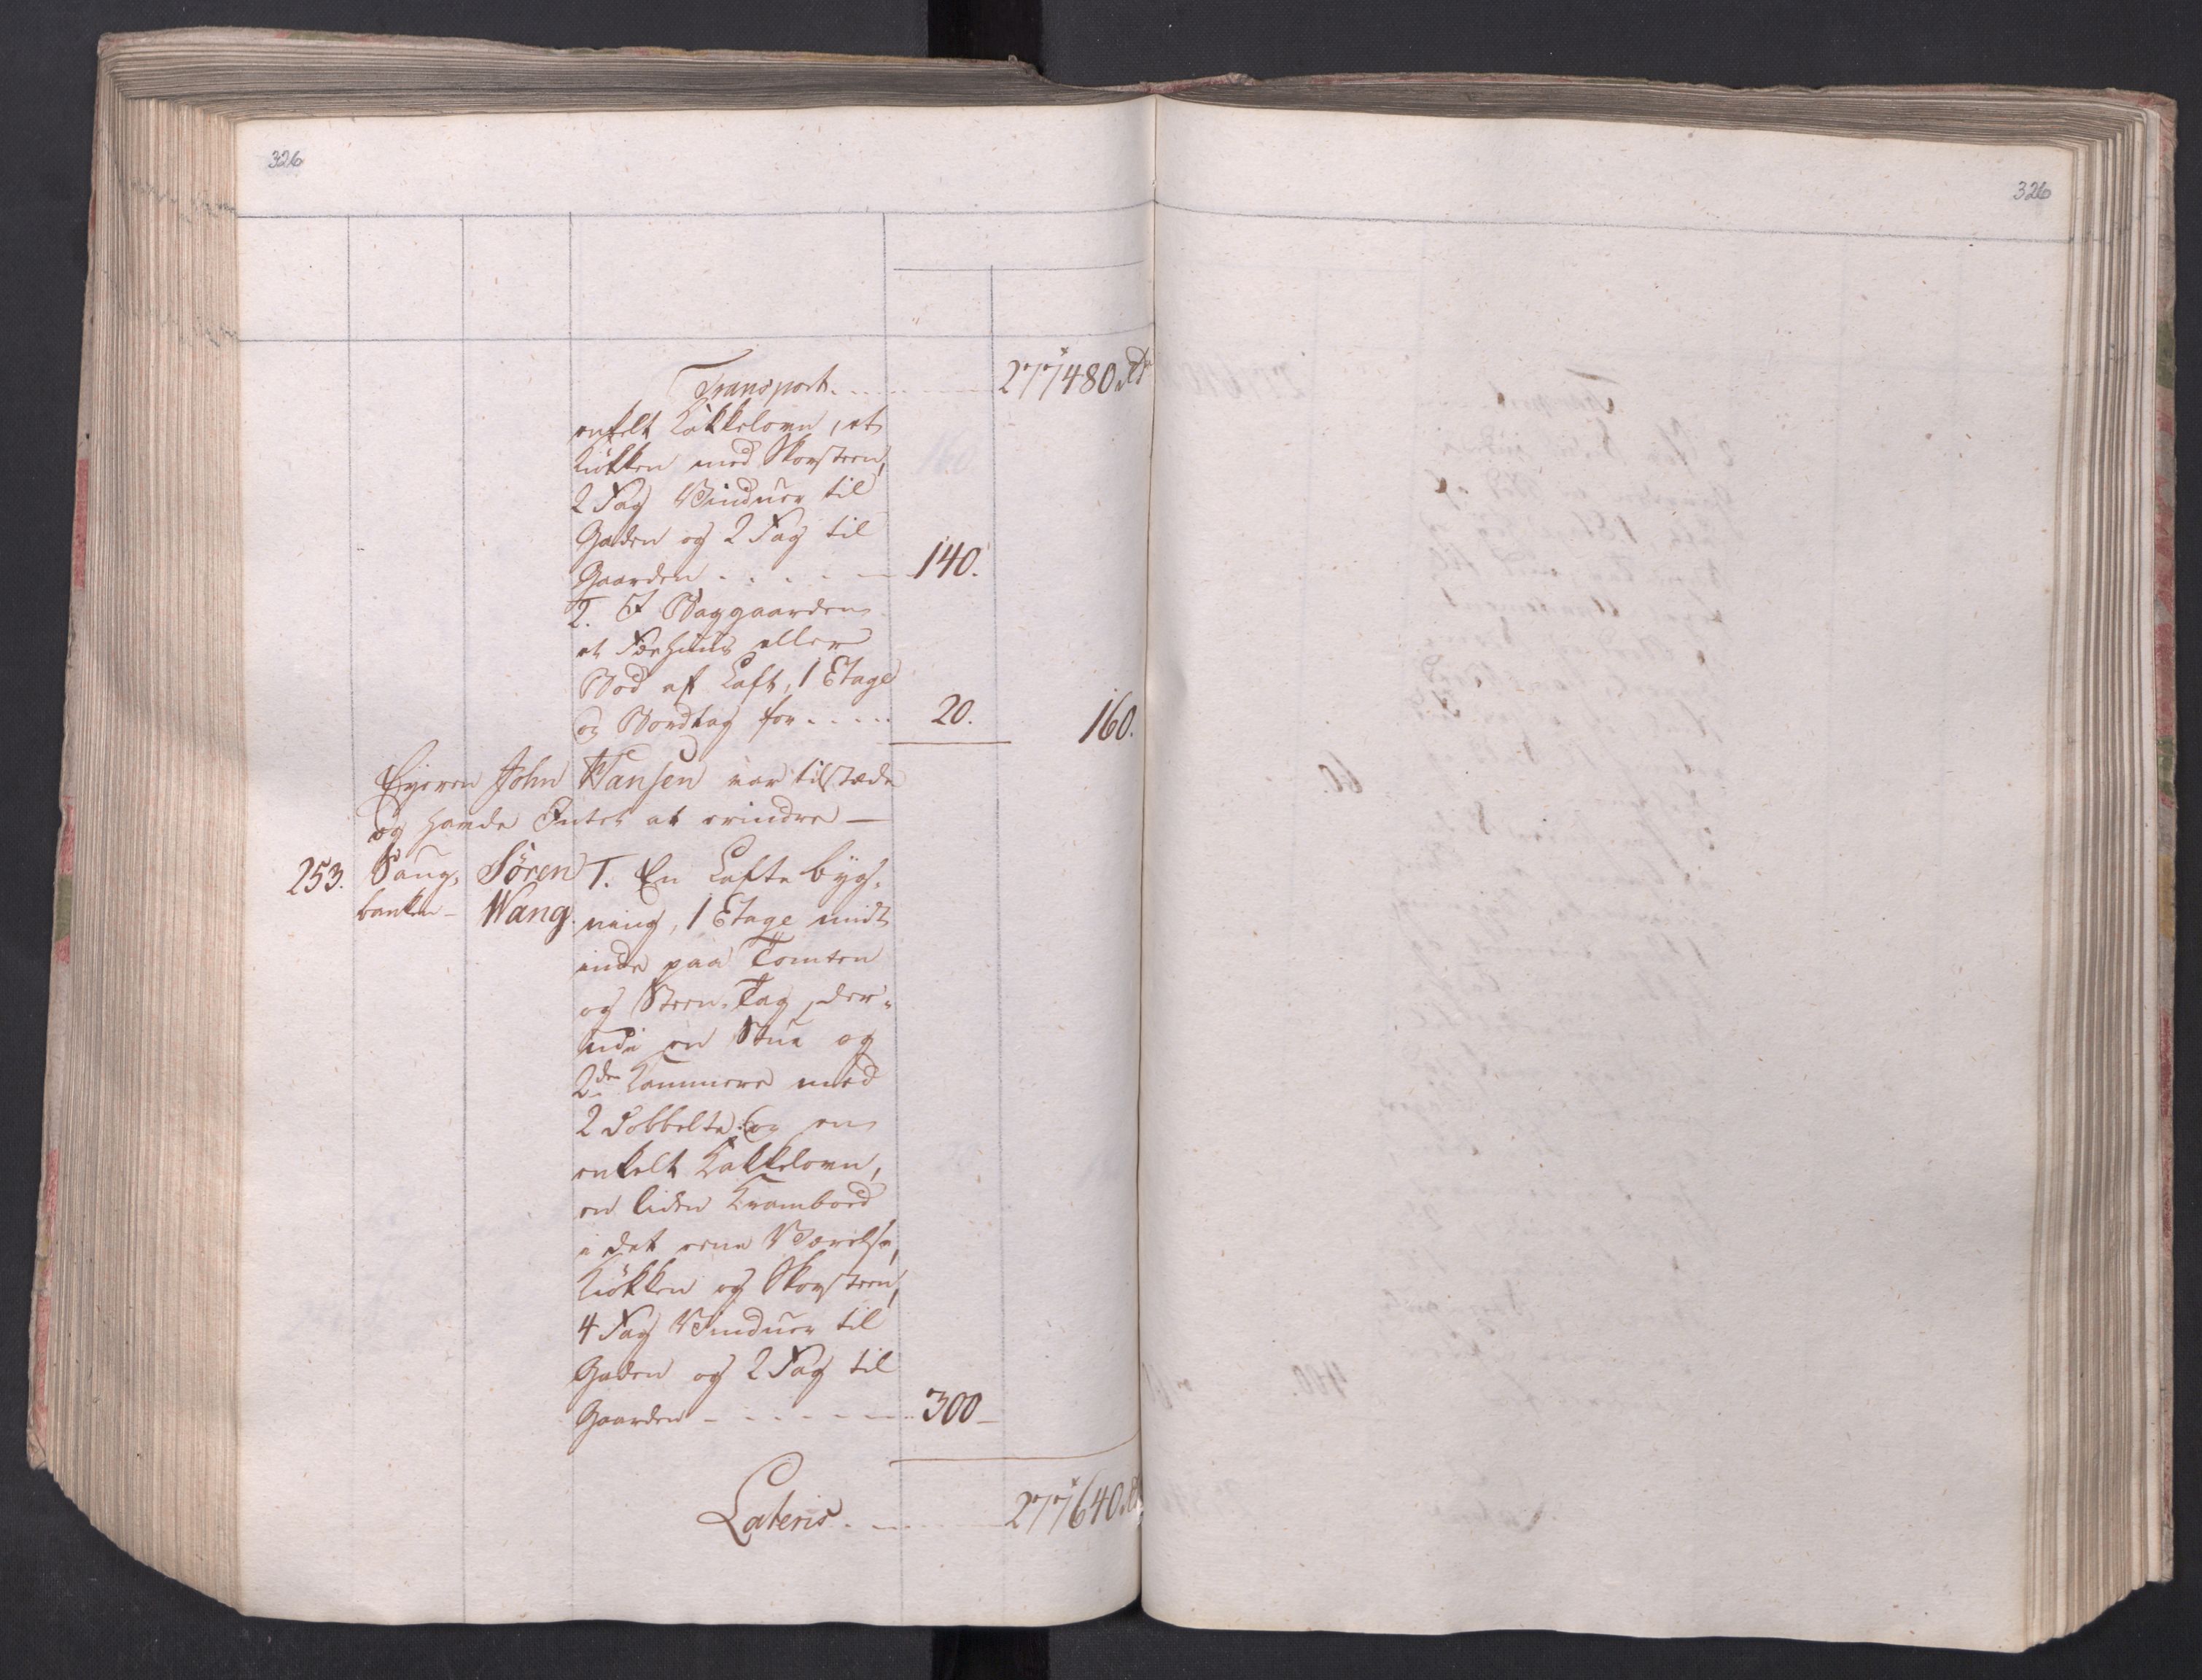 326
326
Transport. . . . . 277480 rd
enkelt Kakkelovn, et
Kiökken med Skorsteen,
2 Fag Vinduer til
Gaden og 2 Fag til
Gaarden . . . . . 140.
2. I Baggaarden
et Fæehuus eller
Bod af Laft, 1 Etage
og Bordtag for . . . . . 20. 160.
Eyeren John Hansen var tilstæde
og havde Intet at erindre —
253. Saug- Sören 1. En Lafte Byg-
banken — Wang. ning, 1 Etage midt
inde paa Tomten
og Steen-Tag, der-
udi en Stue og
2de Kammere med
2 dobbelte og en
enkelt Kakkelovn,
en liden Krambod
i det eene Værelse,
Kiökken og Skorsteen,
4 Fag Vinduer til
Gaden og 2 Fag til
Gaarden — . . . . . 300 —
Lateris . . . . 277640 rd